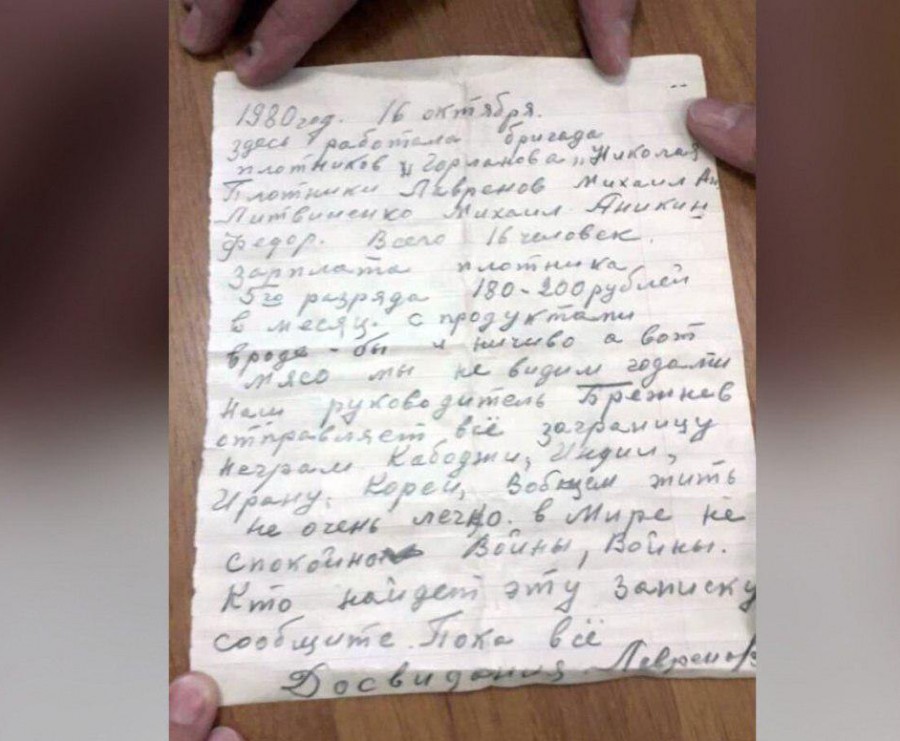 1980 год. 16 октября.
здесь работала бригада
плотников „Горланова„ Николая
Плотники Лавренов Михаил Ан.
Литвиненко Михаил. Аникин
Федор. Всего 16 человек.
Зарплата плотника
5го разряда 180-200 рублей
в месяц. с продуктами
вроде-бы и ничиво а вот
мясо мы не видим годами
Наш руководитель Брежнев
отправляет всё заграницу
неграм Кабоджи, Индии,
Ирану, Кореи, Вобщем жить
не очень легко. в Мире не
спокойно Войны, Войны.
Кто найдет эту Записку
сообщите. Пока всё
Досвидания Лавренов